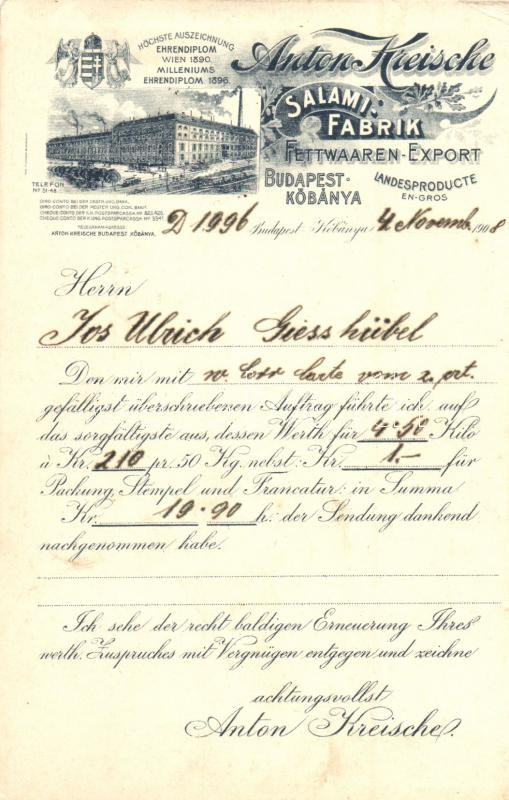 HÖCHSTE AUSZEICHNUNG
EHRENDIPLOM
WIEN 1890.
MILLENIUMS
EHRENDIPLOM 1896.
Anton Kreische
SALAMI-
FABRIK
FETTWAAREN-EXPORT
BUDAPEST-
KŐBÁNYA
LANDESPRODUCTE
EN-GROS
TELEFON
No 51-48.
GIRO-CONTO BEI DER OESTR. UNG. BANK.
GIRO-CONTO BEI DER PESTER UNG. COM. BANK.
CHEQUE-CONTO DER K.K. POSTSPARCASSA No
CHEQUE CONTO DER K. UNG. POSTSPARCASSA No
TELEGRAMM-ADRESSE:
ANTON KREISCHE BUDAPEST KŐBÁNYA.
D 1996
Budapest-Kőbánya 4. Novemb. 1908
Herrn
Jos Ulrich Giesshübel
Den mir mit w. Corr Carte vom 2. ct.
gefälligst überschriebenen Auftrag führte ich auf
das sorgfältigste aus, dessen Werth für 4·50 Kiló
à Kr. 210 pr. 50 Kg. nebst: Kr. 1.- für
Packung, Stempel und Francatur: in Summa
Kr. 19·90 h: der Sendung dankend
nachgenommen habe.
Ich sehe der recht baldigen Erneuerung Ihres
werth. Zuspruches mit Vergnügen entgegen und zeichne
achtungsvollst
Anton Kreische.